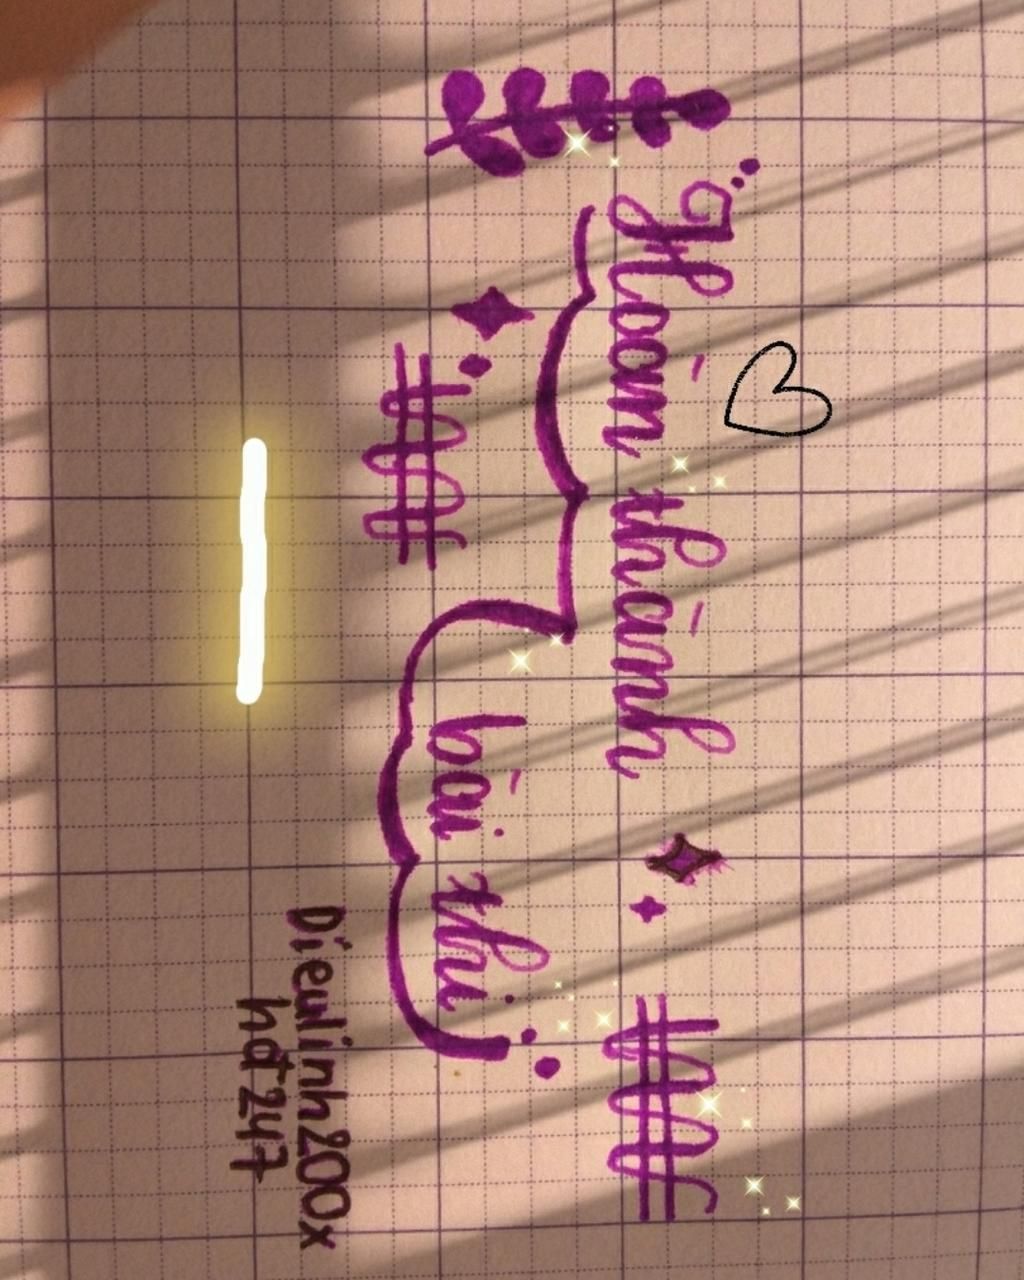 Hoàn thành
bài thi
Dieulinh200x
hd247